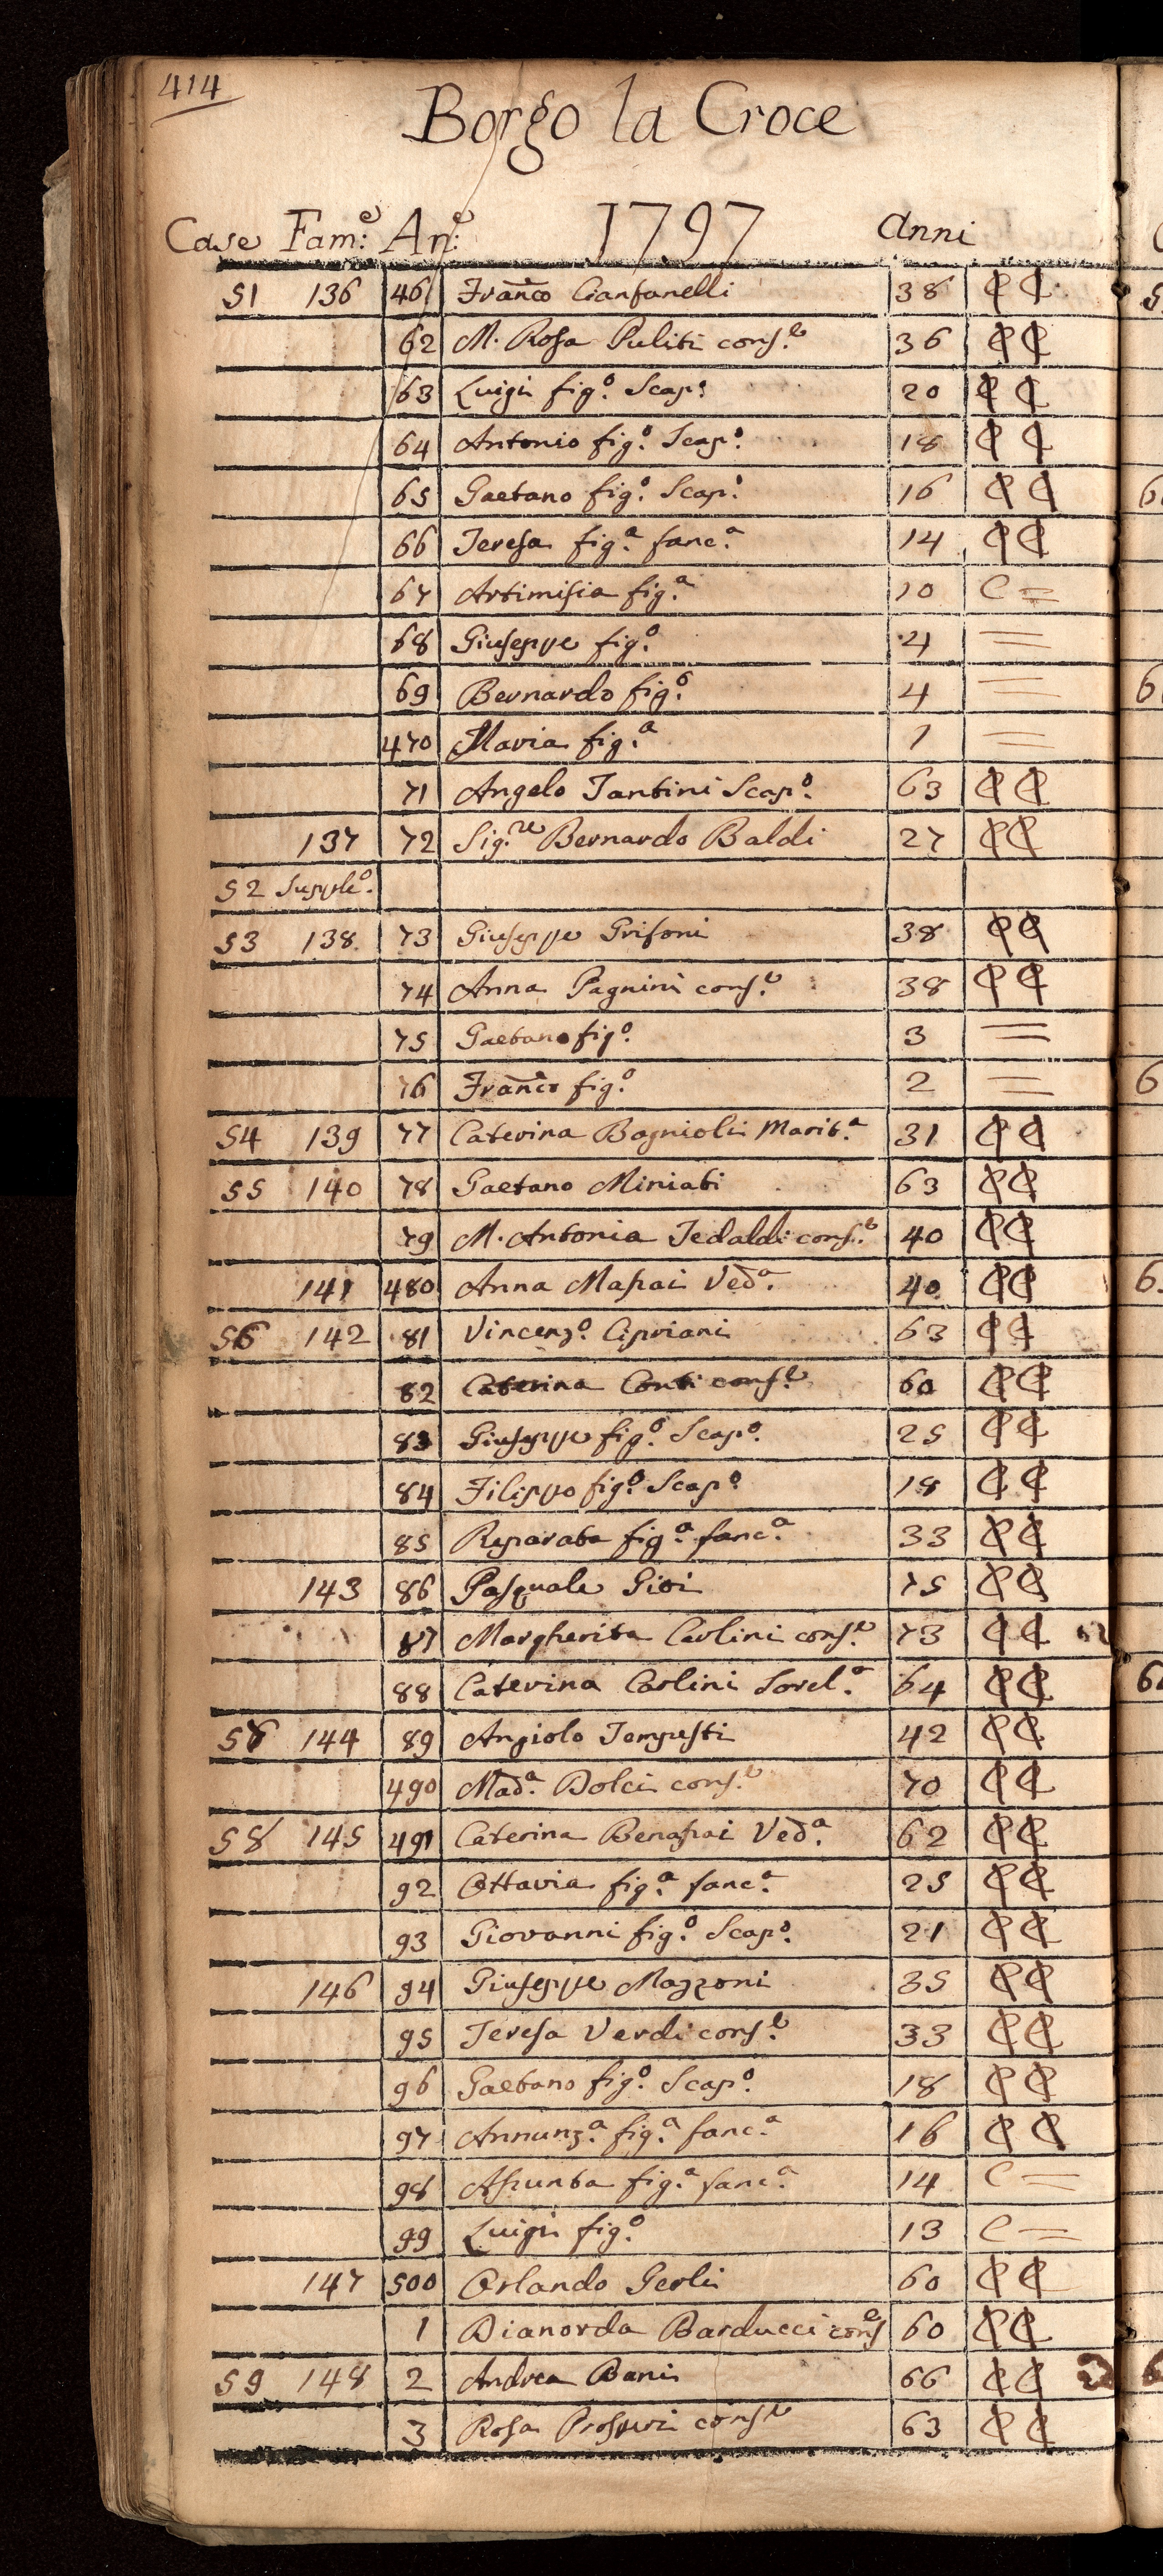 414
Borgo la Croce
Case Fam:e An:e 1797 Anni
51 136 461 Franco Cianfanelli 38 C C
62 M. Rosa Puliti cons.e 36 C C
63 Luigi fig.o Scap.o 20 C C
64 Antonio fig.o Scap.o 18 C C
65 Gaetano fig.o Scap.o 16 C C
66 Teresa fig.a fanc.a 14 C C
67 Artimisia fig.a 10 C =
68 Giuseppe fig.o 4 =
69 Bernardo fig.o 4 =
470 Maria fig.a 1 =
71 Angelo Tantini Scap.o 63 C C
137 72 Sig.re Bernardo Baldi 27 C C
52 Supple.o
53 138 73 Giuseppe Grifoni 38 C C
74 Anna Pagnini cons.e 38 C C
75 Gaetano fig.o 3 =
76 Franco fig.o 2 =
54 139 77 Caterina Bagnioli Marit.a 31 C C
55 140 78 Gaetano Miniati 63 C C
79 M. Antonia Tedaldi cons.e 40 C C
141 480 Anna Massai Ved.a 40 C C
56 142 81 Vincenz.o Cipriani 63 C C
82 Caterina Conti cons.e 60 C C
83 Giuseppe fig.o Scap.o 25 C C
84 Filippo fig.o Scap.o 18 C C
85 Reparata fig.a fanc.a 33 C C
143 86 Pasquale 75 C C
87 Margherita Carlini cons.e 73 C C
88 Caterina Carlini Sorel.a 64 C C
144 89 Angiolo Tempesti 42 C C
490 Mad.a Dolci cons.e 70 C C
58 145 491 Caterina Benassai Ved.a 62 C C
92 Ottavia fig.a fanc.a 25 C C
93 Giovanni fig.o Scap.o 21 C C
146 94 Giuseppe Mazzoni 35 C C
95 Teresa Verdi cons.e 33 C C
96 Gaetano fig.o Scap.o 18 C C
97 Annunz.a fig.a fanc.a 16 C C
98 Assunta fig.a fanc.a 14 C =
99 Luigi fig.o 13 C =
147 500 Orlando Gerli 60 C C
1 Dianorda Barducci cons.e 60 C C
59 148 2 Andrea Banis 66 C C
3 Rosa Prosperi cons.e 63 C C